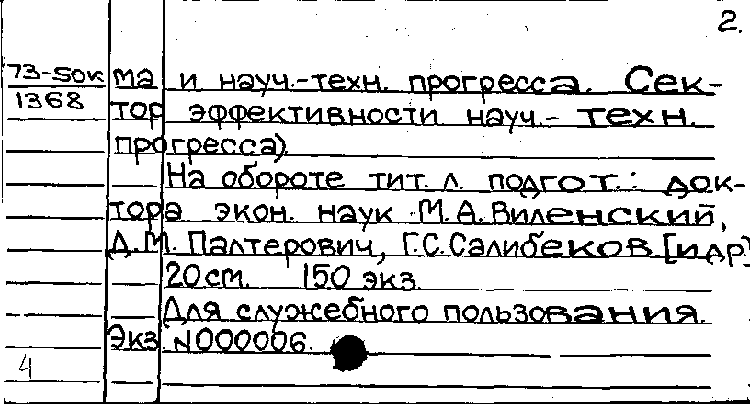 2.
73-50к ма и науч.-техн. прогресса. Сек-
1368 тор эффективности науч.- техн.
прогресса)
На обороте тит. л. подгот.: док-
тора экон. наук М.А. Виленский,
Д.М. Палтерович, Г.С. Салибеков [и др]
20 см. 150 экз.
Для служебного пользования.
Экз. N000006.
4